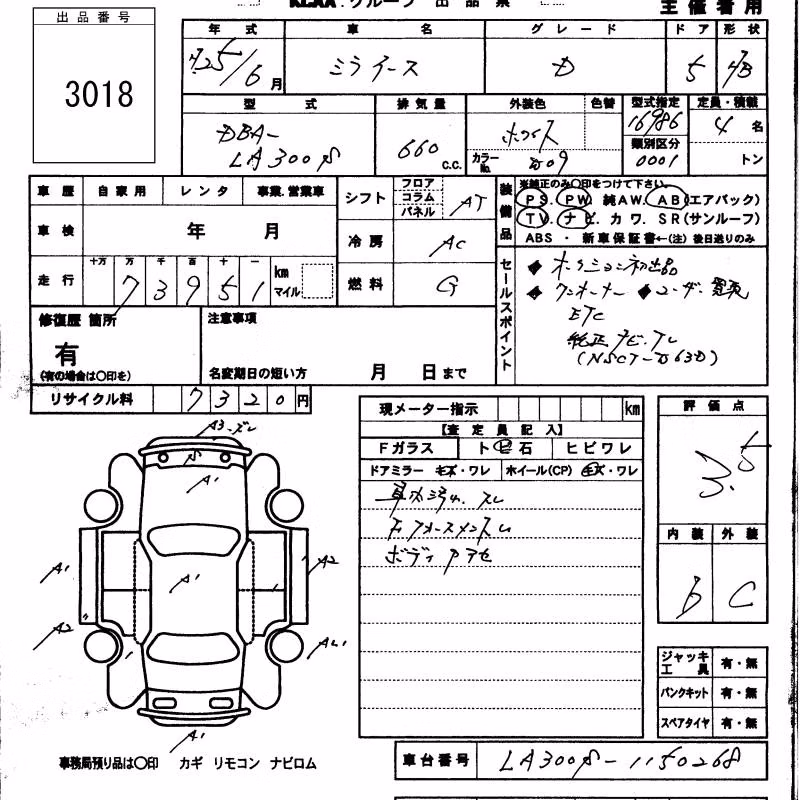 KCAA.グループ 出品票
主催者用
出品番号
3018
年式 車名 グレード ドア 形状
H25/6月 ミライース D 5 HB
型式 排気量 外装色 色替 型式指定 定員・積載
DBA- 660 ホワイト 16986 4名
LA300S C.C. カラーNo. 類別区分 0001 トン
車歴 自家用 レンタ 事業.営業車
シフト フロア コラム パネル AT
装備品 ※純正のみ〇印をつけて下さい。
PS. PW. 純AW. AB(エアバック)
TV. ナビ. カワ. SR(サンルーフ)
ABS ・ 新車保証書←(注)後日送りのみ
車検 年 月
冷房 AC
走行 十万 万 千 百 十 一 km マイル
73951
燃料 G
セールスポイント
◆ オークション初出品
◆ ワンオーナー ◆ ユーザー買取
ETC
純正ナビ.TV
(NSCT-D63D)
修復歴 箇所
有
(有の場合は〇印を)
注意事項
名変期日の短い方 月 日まで
リサイクル料 7320円
現メーター指示 km
【査定員記入】
Fガラス トビ石 ヒビワレ
ドアミラー キズ・ワレ ホイール(CP) キズ・ワレ
ボディ
評価点
3.5
内装 外装
B C
A1
A1
A1
A2
A2
A1
ジャッキ工具 有・無
パンクキット 有・無
スペアタイヤ 有・無
事務局預り品は〇印 カギ リモコン ナビロム
車台番号 LA300S-1150268